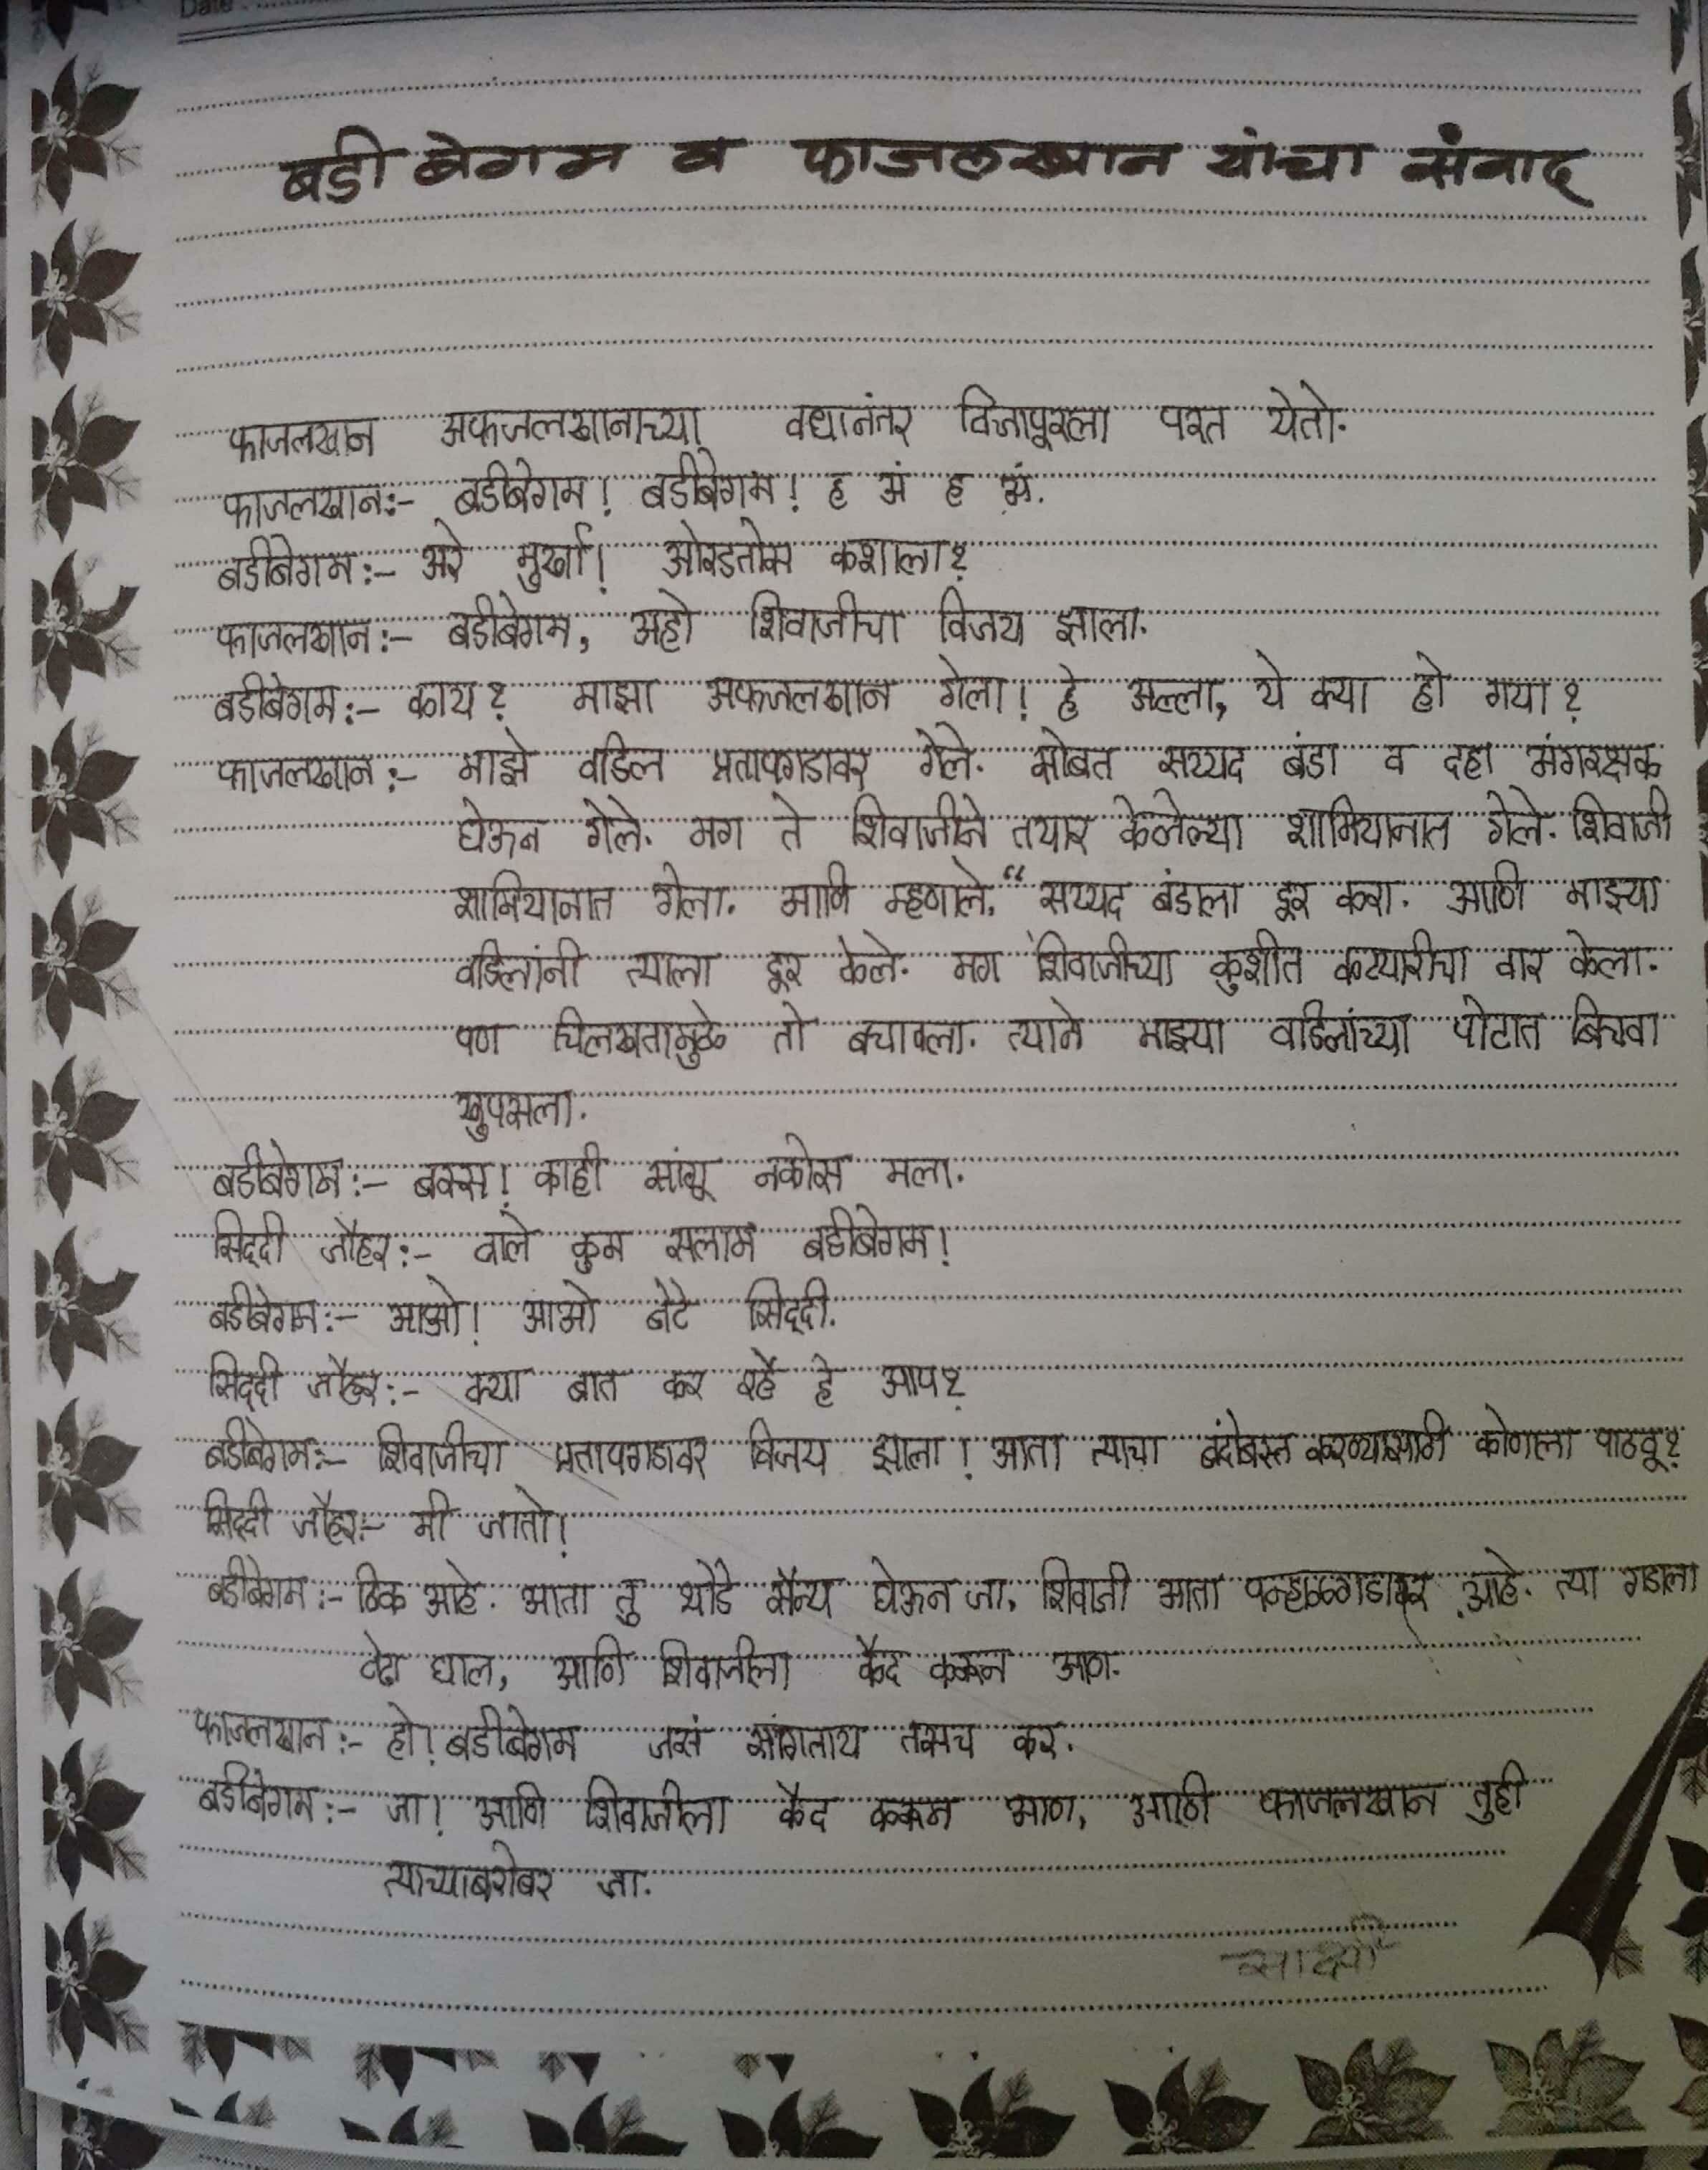 Date
बडी बेगम व फाजलखान यांचा संवाद
फाजलखान अफजलखानाच्या वधानंतर विजापूरला परत येतो.
फाजलखान:- बडीबेगम! बडीबेगम! ह अं ह अं.
बडीबेगम:- अरे मुर्खा! ओरडतोस कशाला?
फाजलखान:- बडीबेगम, अहो शिवाजीचा विजय झाला.
बडीबेगम:- काय? माझा अफजलखान गेला! हे अल्ला, ये क्या हो गया?
फाजलखान:- माझे वडिल प्रतापगडावर गेले. सोबत सय्यद बंडा व दहा अंगरक्षक
घेऊन गेले. मग ते शिवाजीने तयार केलेल्या शामियानात गेले. शिवाजी
शामियानात गेला. आणि म्हणाले, “सय्यद बंडाला दूर करा. आणि माझ्या
वडिलांनी त्याला दूर केले. मग शिवाजीच्या कुशीत कट्यारीचा वार केला.
पण चिलखतामुळे तो बचावला. त्याने माझ्या वडिलांच्या पोटात बिचवा
खुपसला.
बडीबेगम:- बक्स! काही सांगू नकोस मला.
सिद्दी जौहर:- वाले कुम सलाम बडीबेगम!
बडीबेगम:- आओ! आओ बेटे सिद्दी.
सिद्दी जौहर:- क्या बात कर रहे हे आप?
बडीबेगम:- शिवाजीचा प्रतापगडावर विजय झाला! आता त्याचा बंदोबस्त करण्यासाठी कोणाला पाठवू?
सिद्दी जौहर:- मी जातो!
बडीबेगम:- ठिक आहे. आता तु थोडे सैन्य घेऊन जा, शिवाजी आता पन्हाळगडावर आहे. त्या गडाला
वेढा घाल, आणि शिवाजीला कैद करून आण.
फाजलखान:- हो! बडीबेगम जसं सांगताय तसच कर.
बडीबेगम:- जा! आणि शिवाजीला कैद करून आण, आणी फाजलखान तुही
त्याच्याबरोबर जा.